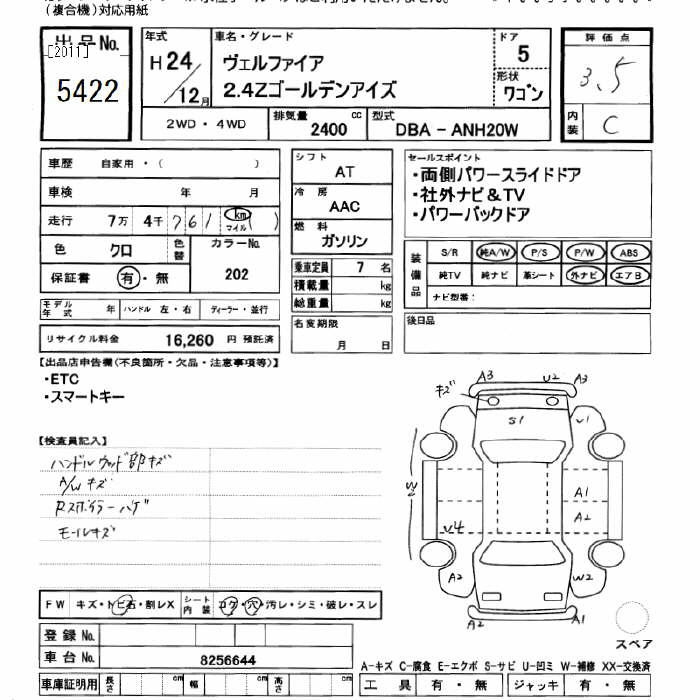 (複合機)対応用紙
出品No.
[2011]
5422
年式
H24/12月
車名・グレード
ヴェルファイア
2.4Zゴールデンアイズ
ドア
5
形状
ワゴン
評価点
3.5
内装
C
2WD・4WD
排気量 2400 cc
型式 DBA-ANH20W
車歴 自家用・( )
車検 年 月
走行 7万 4千 761 km マイル ( )
色 クロ 色替 カラーNo. 202
保証書 有・無
シフト
AT
冷房
AAC
燃料
ガソリン
乗車定員 7 名
積載量 kg
総重量 kg
セールスポイント
・両側パワースライドドア
・社外ナビ&TV
・パワーバックドア
装備品
S/R 純A/W P/S P/W ABS
純TV 純ナビ 革シート 外ナビ エアB
ナビ型番:
モデル年式 年 ハンドル 左・右 ディーラー・並行
リサイクル料金 16,260 円 預託済
名変期限
月 日
後日品
【出品店申告欄(不良箇所・欠品・注意事項等)】
・ETC
・スマートキー
【検査員記入】
ハンドルウッド部キズ
A/Wキズ
Rスポイラーハゲ
モールキズ
A3 U2 A3
キズ
S1
U1
W2
A1
A2
U4
A2
W2
A2
A1
スペア
FW キズ・トビ石・割レX シート内装 コゲ・穴・汚レ・シミ・破レ・スレ
登録No.
車台No. 8256644
車庫証明用 長さ cm 幅 cm 高さ cm
A-キズ C-腐食 E-エクボ S-サビ U-凹ミ W-補修 XX-交換済
工具 有・無 ジャッキ 有・無